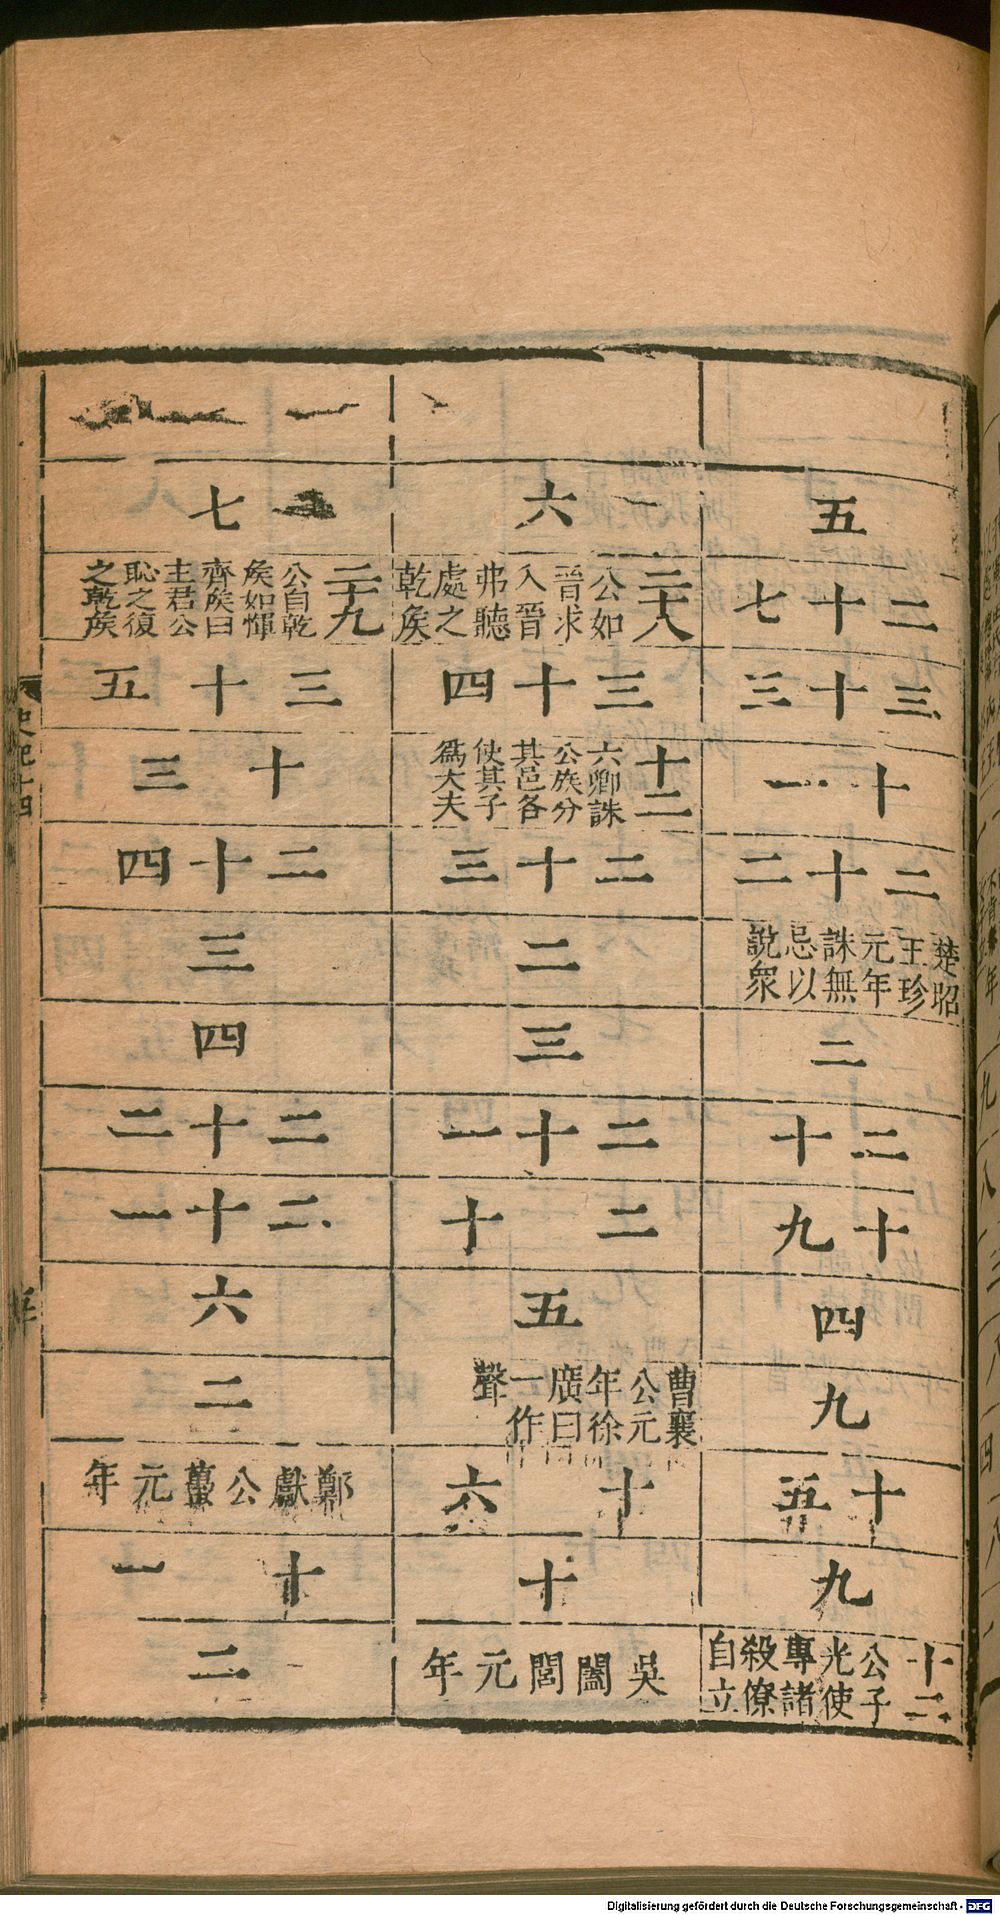 五
二十七
三十三
十一
二十二
楚昭王珍元年誅無忌以說衆
二
二十
十九
四
九
十五
九
十二公子光使專諸殺僚自立
六
二十八公如晉求入晉弗聽處之乾矦
三十四
十二六卿誅公族分其邑各使其子爲大夫
二十三
二
三
二十一
二十
五
曹襄公元年徐廣曰一作聲
十六
十
吳闔閭元年
七
二十九公自乾矦如鄆齊矦曰主君公恥之復之乾矦
三十五
十三
二十四
三
四
二十二
二十一
六
二
鄭獻公蠆元年
十一
二
史記十四
Digitalisierung gefördert durch die Deutsche Forschungsgemeinschaft - DFG